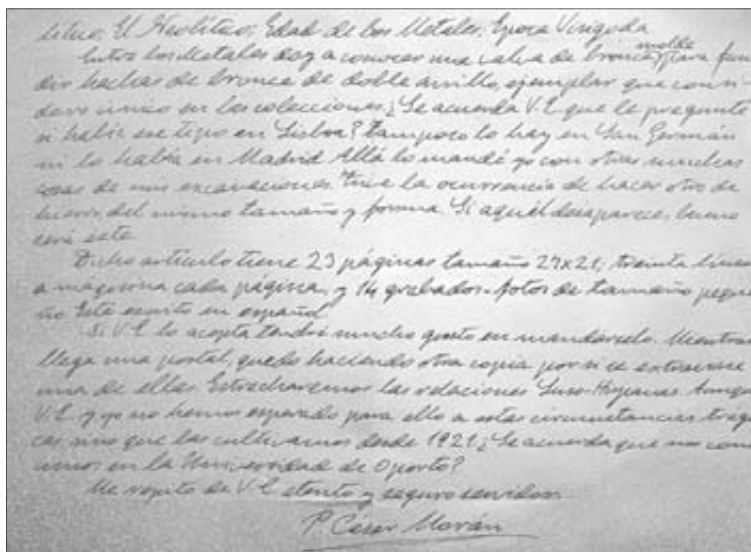 lítico; El Neolítico; Edad de los Metales; Epoca Visigoda
Entre los Metales doy a conocer una valva de bronce, molde para fun
dir hachas de bronce de doble anillo, ejemplar que consi
dero único en las colecciones ¿Se acuerda V.E. que le pregunté
si había ese tipo en Lisboa? tampoco lo hay en San Germán
ni lo había en Madrid Allá lo mandé yo con otras muchas
cosas de mis excavaciones. Tuve la ocurrencia de hacer otro de
hierro, del mismo tamaño y forma. Si aquél desaparece, bueno
será este
Dicho artículo tiene 23 páginas tamaño 27x21; treinta líneas
a maquina cada página, y 14 grabados-fotos de tamaño peque
ño Está escrito en español
Si V.E. lo acepta tendré mucho gusto en mandárselo. Mientras
llega una postal, quedo haciendo otra copia por si se extraviase
una de ellas. Estrecharemos las relaciones Luso-Hispanas Aunque
V.E. y yo no hemos esperado para ello a estas circunstancias trági
cas sino que las cultivamos desde 1921 ¿Se acuerda que nos cono
cimos en la Universidad de Oporto?
Me repito de V.E atento y seguro servidor
P. César Morán